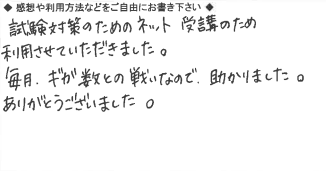 ◆ 感想や利用方法などをご自由にお書き下さい ◆
試験対策のためのネット 受講のため
利用させていただきました。
毎月、ギガ数との戦いなので、助かりました。
ありがとうございました。